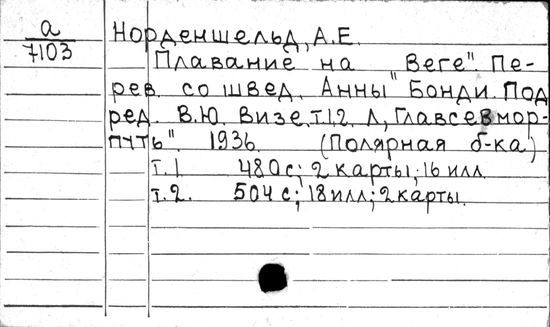 а
7103
Норденшельд, А.Е.
Плавание на "Веге". Пе-
рев. со швед. Анны Бонди. Под
ред. В.Ю. Визе. Т.1.2. Л., Главсевмор-
путь". 1936. (Полярная б-ка)
т.1. 480с; 2 карты; 16 илл
т.2. 504 с; 18 илл; 2 карты.